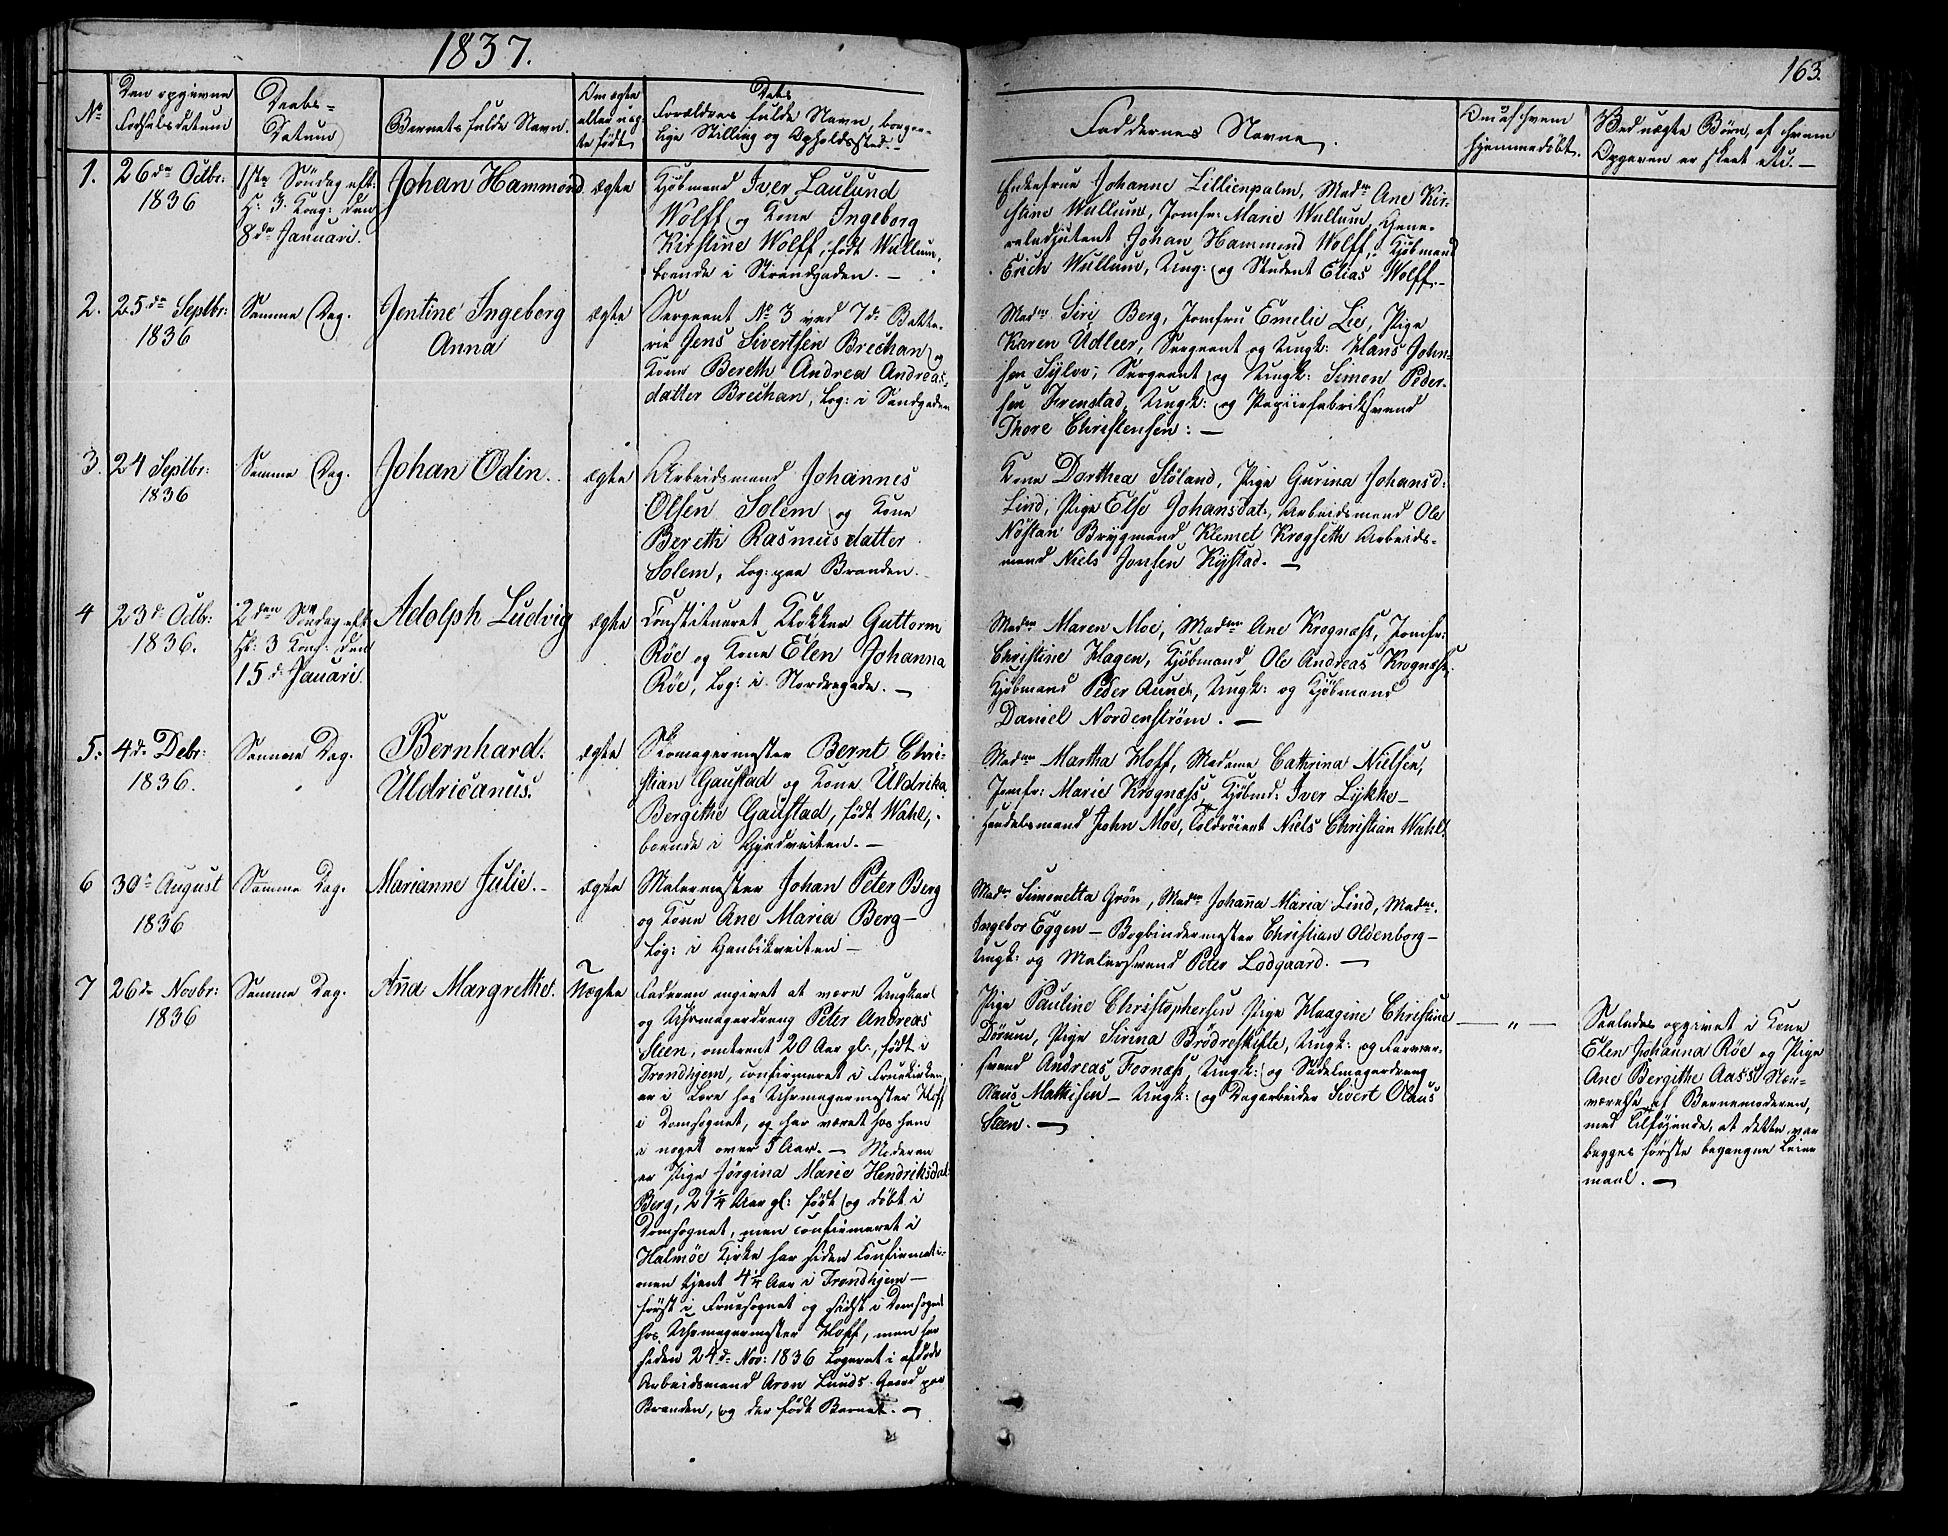 1837.
163.
No
Den opgivne Fødselsdatum
Daabs-Datum
Barnets fulde Navn.
Om ægte eller uægte født
Dets Forældres fulde Navn, borgerlige Stilling og Opholdssted.
Faddernes Navne.
hjemmedøbt.
Ved uægte Børn, af hvem Opgaven er skeet etc. —
1.
26de Octbr:
1836
1ste Søndag eft:
H: 3 Kong: den
8de Januari.
Johan Hammond
ægte
Kjøbmand Iver Laulund
Wolff og Kone Ingeborg
Kirstine Wolff, født Wullum,
boende i Strandgaden. —
Enkefrue Johanne Lillienpalm, Madm Ane Kir-
stine Wullum, Jomfr: Marie Wullum, Gene-
raladjutant Johan Hammond Wolff, Kjøbmand
Erich Wullum, Ung: og Student Elias Wolff. —
2.
25de Septbr:
1836
Samme Dag.
Jentine Ingeborg
Anna
ægte
Sergeant No 3 ved 7de Batte-
rie Jens Sivertsen Brechan og
Kone Bereth Andrea Andreas-
datter Brechan, Log: i Sandgaden
Madm Siri Berg, Jomfru Emelie Lie, Pige
Karen Udleer, Sergeant og Ungk: Hans John-
sen Sylov, Sergeant og Ungk: Simon Peder-
sen Frenstad, Ungk: og Papiirfabriksvend
Thore Christensen: —
3.
24 Septbr:
1836
Samme Dag.
Johan Odin.
ægte
Arbeidsmand Johannes
Olsen Solem og Kone
Bereth Rasmusdatter
Solem, Log: paa Branden.
Kone Dorthea Stöland, Pige Gurina Johansd:
Lind, Pige Else Johansdat:, Arbeidsmand Ole
Nöstan Brygmand Klemet Krogseth Arbeids-
mand Niels Jonsen Kystad. —
4
23de Octbr:
1836.
2den Søndag eft:
H: 3 Kong: den
15de Januari.
Adolph Ludvig
ægte
Constitueret Klokker Guttorm
Röe og Kone Elen Johanna
Röe, Log: i Nordregade. —
Madm Maren Moe, Madm Ane Krognæss, Jomfr:
Christine Hagen, Kjøbmand Ole Andreas Krognæss,
Kjøbmand Peder Aune, Ungk: og Kjøbmand
Daniel Nordenström. —
5.
4de Debr:
1836.
Samme Dag.
Bernhard
Uldricanus.
ægte
Skomagermester Bernt Chri-
stian Gaustad og Kone Uldrika
Bergithe Gaustad, født Wahl,
boende i Gjedveiten. —
Madm Martha Hoff, Madame Cathrina Nielsen,
Jomfr: Marie Krognæss, Kjøbmd: Iver Lykke —
Handelsmand John Moe, Toldroiert Niels Christian Wahl.
6
30te August
1836
Samme Dag.
Marianne Julie. —
ægte
Malermester Johan Peter Berg
og Kone Ane Maria Berg —
Log: i Haubitsveiten —
Madm Simonetta Grön, Madm Johanna Maria Lind, Madm
Ingebor Eggen — Bogbindermester Christian Oldenborg —
Ungk: og Malersvend Peter Lodgaard. —
7
26de Novbr:
1836
Samme Dag.
Anna Margrethe.
Uægte
Faderen angivet at være Ungkarl
og Uhrmagerdreng Peter Andreas
Steen, omtrent 20 Aar gl:, født i
Trondhjem, confirmeret i Fruekirken
er i Lære hos Uhrmagermester Hoff
i Domsognet, og har været hos ham
i noget over 5 Aar. — Moderen
er Pige Jörgina Marie Hendriksdat:
Berg, 21¼ Aar gl: født og døbt i
Domsognet, men confirmeret i
Halmöe Kirke har siden Confirmati-
onen tjent 4¼ Aar i Trondhjem —
først i Fruesognet og sidst i Domsognet
hos Uhrmagermester Hoff, men har
siden 24de Nov: 1836 logeret i afdøde
Arbeidsmand Aron Lunds Gaard paa
Branden, og der født Barnet. —
Pige Pauline Christophersen Pige Haagine Christine
Dörum, Pige Sirina Brödreskifte, Ungk: og Farver-
svend Andreas Fornæss, Ungk: og Sadelmagerdreng
Claus Mathisen — Ungk: og Dagarbeider Sivert Olaus
Steen. —
— „ —
Saaledes opgivet i Kone
Elen Johanna Röe og Pige
Ane Bergithe Aass's Nær-
værelse af Barnemoderen,
med Tilføiende, at dette var
begges første begangne Leier-
maal. —